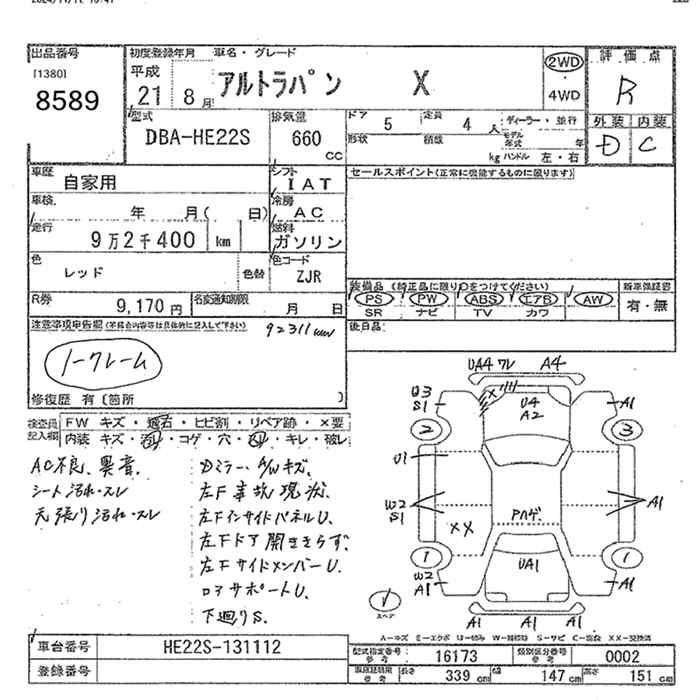 出品番号
[1380]
8589
初度登録年月 車名・グレード
平成
21 8月
アルトラパン X
2WD
・
4WD
評価点
R
外装 内装
D C
型式
DBA-HE22S
排気量
660
CC
ドア 5
定員 4 人
形状
積載 kg
ディーラー・並行
モデル年式 年
ハンドル 左・右
車歴
自家用
シフト
IAT
車検
年 月( 日)
冷房
AC
走行
9万2千400 km
燃料
ガソリン
色
レッド
色替
色コード
ZJR
R券
9,170円
名変通知期限
月 日
セールスポイント(正常に機能するものに限ります)
装備品 (純正品に限り○をつけてください)
PS PW ABS エアB AW
SR ナビ TV カワ
新車保証書
有・無
後日品
注意事項申告欄(不具合内容等は具体的に記入して下さい)
92311km
ノークレーム
修復歴 有 〔箇所 〕
検査員記入欄
FW キズ・飛石・ヒビ割・リペア跡・×要
内装 キズ・汚れ・コゲ・穴・スレ・キレ・破レ
AC不良、異音。
シート汚れ・スレ
天張り汚れ・スレ
Dミラー、A/Wキズ。
左F事故現状。
左FインサイドパネルU。
左Fドア開ききらず。
左FサイドメンバーU。
ロアサポートU。
下廻りS。
UA4 ワレ A4
U3
S1
U4
A2
A1
2
3
U1
W2
S1
A1
XX
Aハゲ。
1
1
UA1
W2
A1
A1
A1 A1 A1
スペア
A-キズ E-エクボ U-凹み W-補修跡 S-サビ C-腐食 XX-交換済
車台番号
HE22S-131112
登録番号
型式指定番号
参考
16173
類別区分番号
参考
0002
参考
長さ 339 cm
幅 147 cm
高さ 151 cm